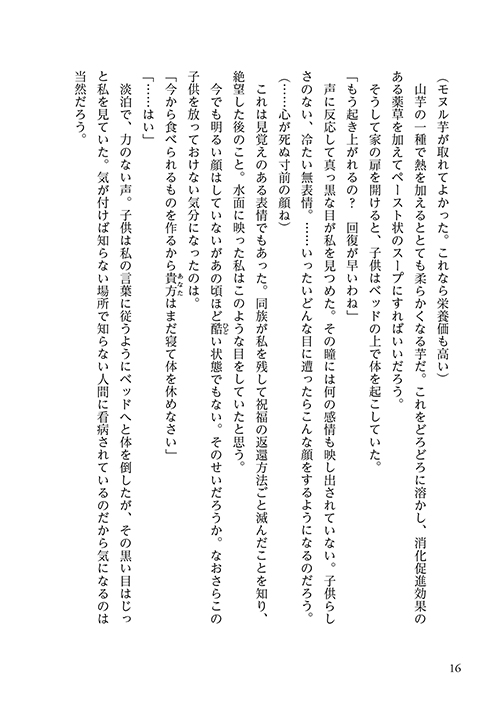 （モヌル芋が取れてよかった。これなら栄養価も高い）
　山芋の一種で熱を加えるととても柔らかくなる芋だ。これをどろどろに溶かし、消化促進効果の
ある薬草を加えてペースト状のスープにすればいいだろう。
　そうして家の扉を開けると、子供はベッドの上で体を起こしていた。
「もう起き上がれるの？　回復が早いわね」
　声に反応して真っ黒な目が私を見つめた。その瞳には何の感情も映し出されていない。子供らし
さのない、冷たい無表情。……いったいどんな目に遭ったらこんな顔をするようになるのだろう。
（……心が死ぬ寸前の顔ね）
　これは見覚えのある表情でもあった。同族が私を残して祝福の返還方法ごと滅んだことを知り、
絶望した後のこと。水面に映った私はこのような目をしていたと思う。
　今でも明るい顔はしていないがあの頃ほど酷い状態でもない。そのせいだろうか。なおさらこの
子供を放っておけない気分になったのは。
「今から食べられるものを作るから貴方はまだ寝て体を休めなさい」
「……はい」
　淡泊で、力のない声。子供は私の言葉に従うようにベッドへと体を倒したが、その黒い目はじっ
と私を見ていた。気が付けば知らない場所で知らない人間に看病されているのだから気になるのは
当然だろう。
16